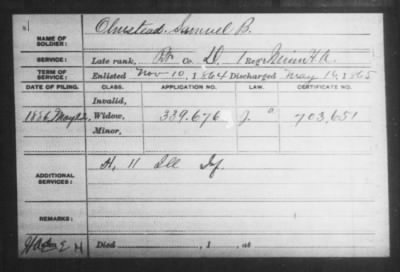 NAME OF SOLDIER: Olmstead, Samuel B.
SERVICE: Late rank, Pt. Co. D, 1 Reg't Minn H.A.
TERM OF SERVICE: Enlisted Nov 10, 1864 Discharged May 16, 1865
DATE OF FILING. CLASS. APPLICATION NO. LAW. CERTIFICATE NO.
Invalid,
1886 May Widow, 339.676 703,651
Minor,
ADDITIONAL SERVICES: H, 11 Ill Inf.
REMARKS:
Died , 1 , at